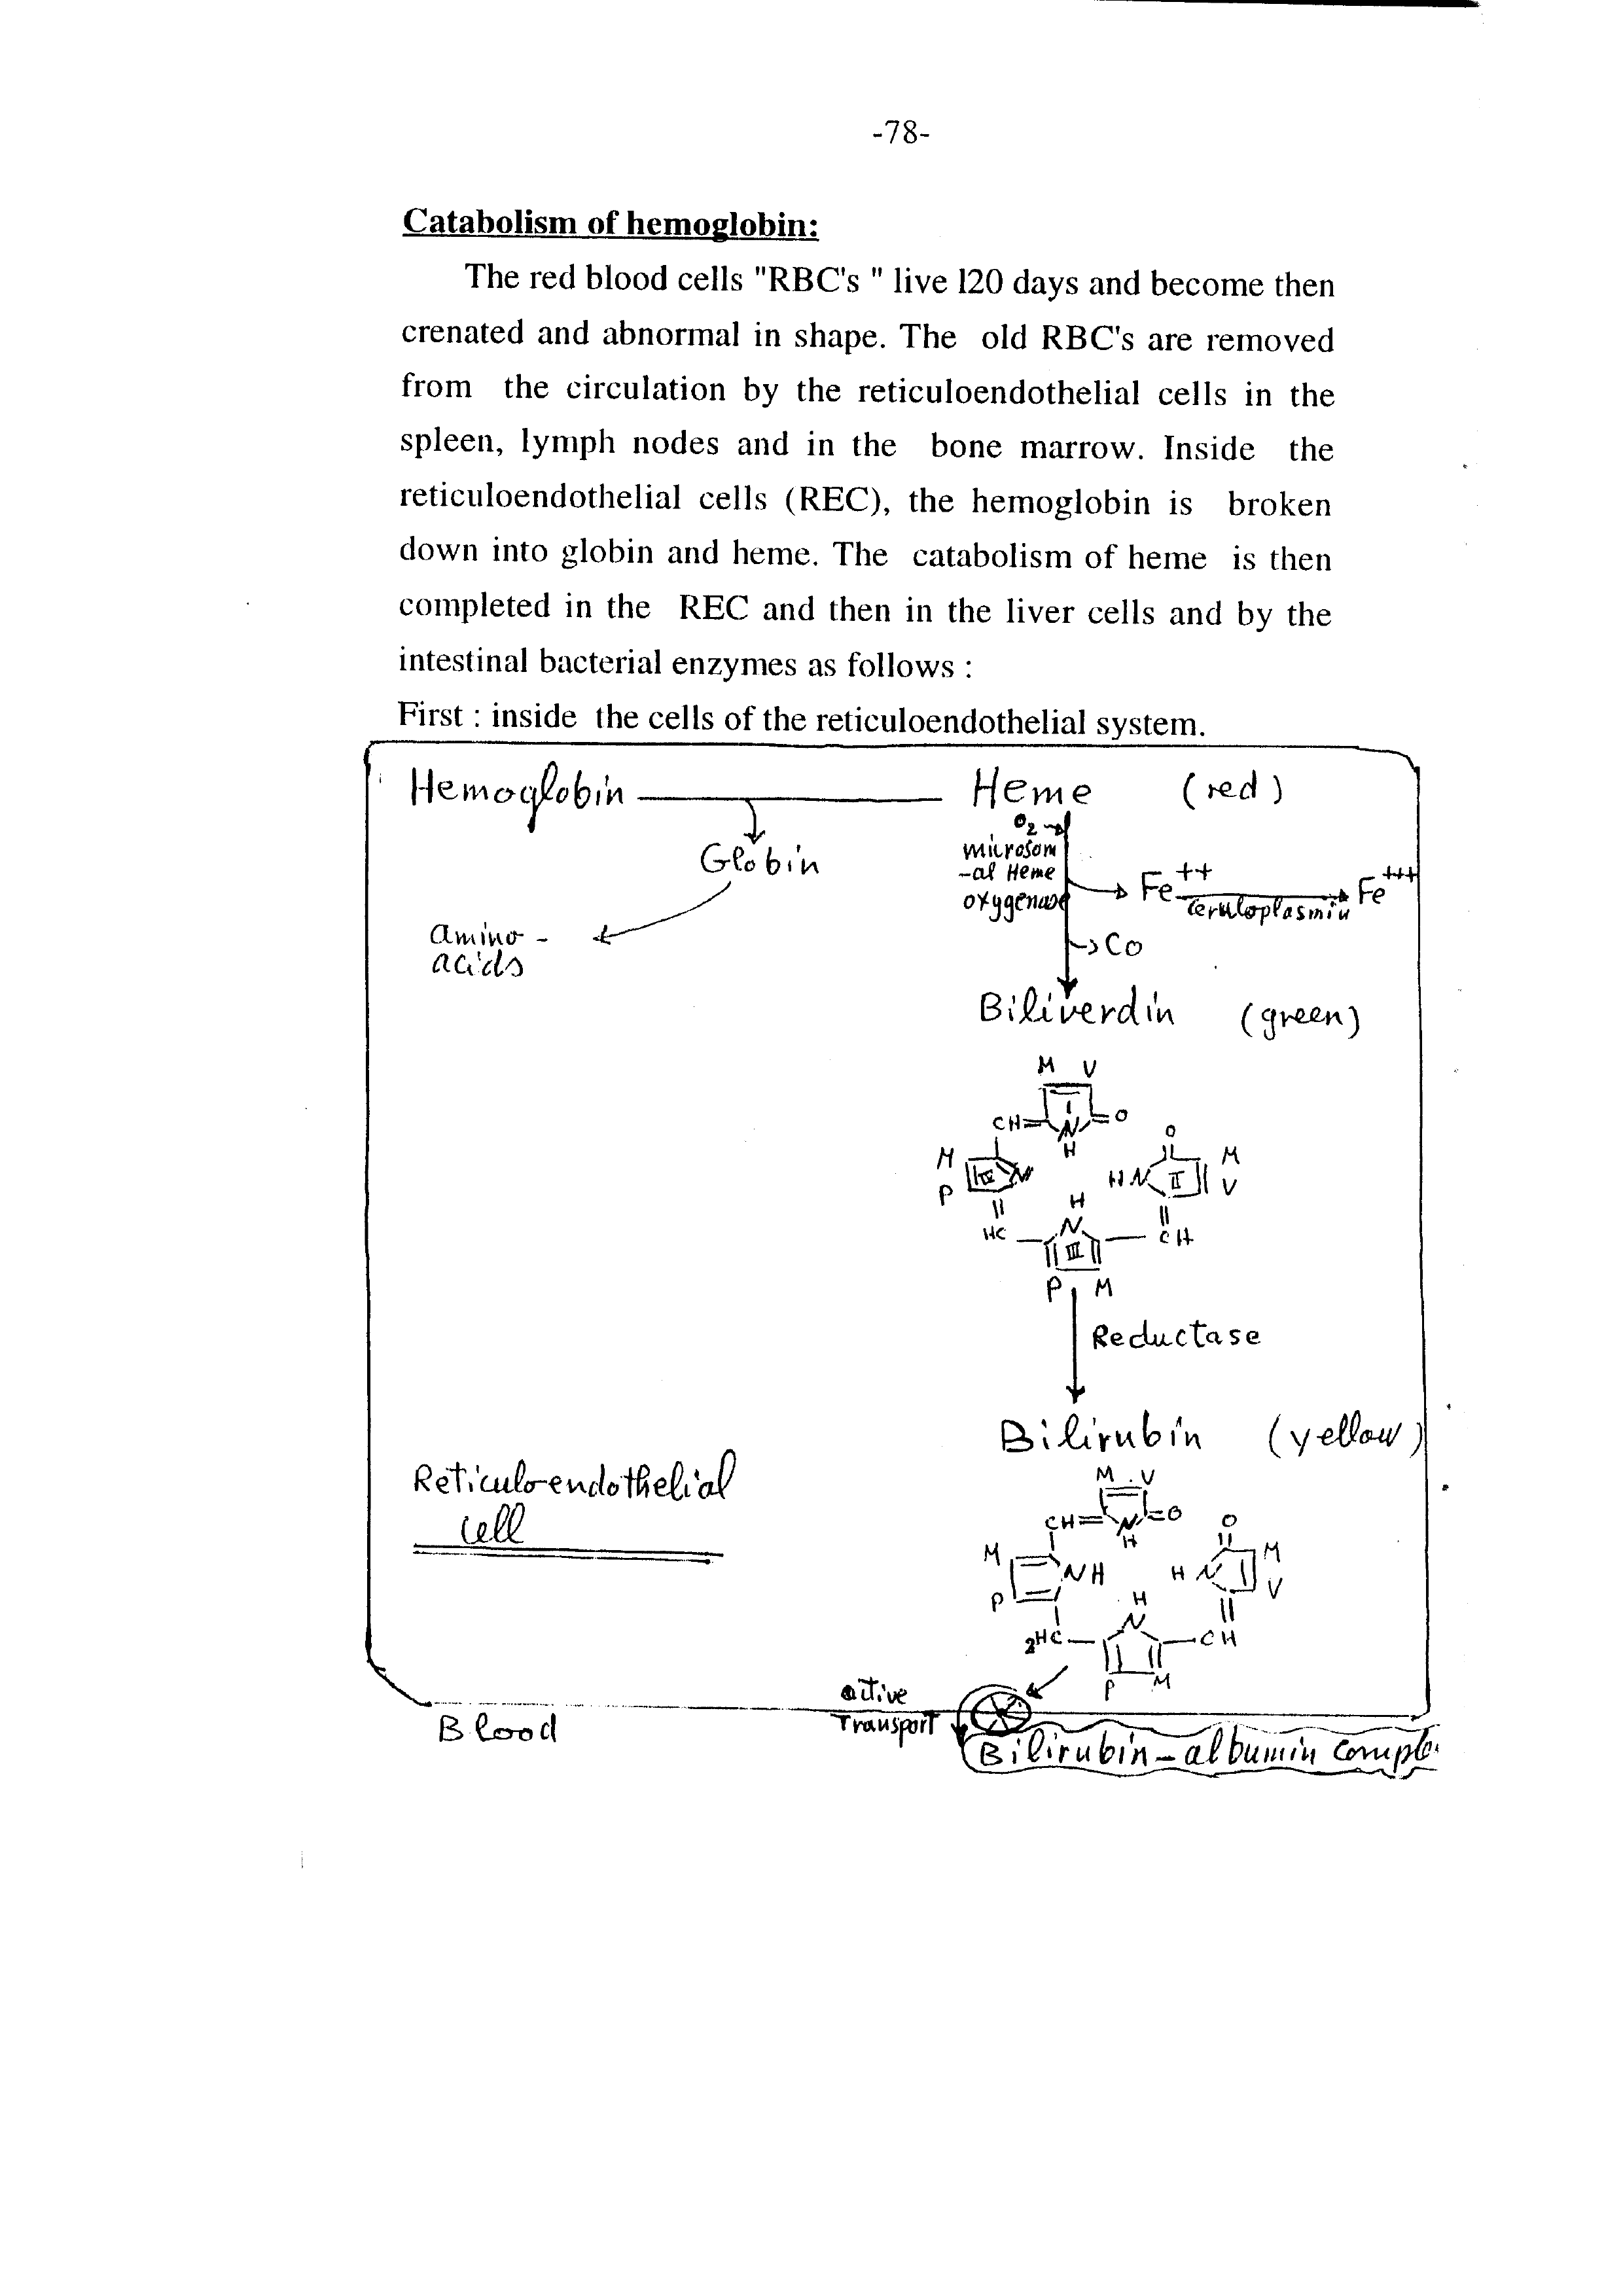 -78-
Catabolism of hemoglobin:
The red blood cells "RBC's " live 120 days and become then
crenated and abnormal in shape. The old RBC's are removed
from the circulation by the reticuloendothelial cells in the
spleen, lymph nodes and in the bone marrow. Inside the
reticuloendothelial cells (REC), the hemoglobin is broken
down into globin and heme. The catabolism of heme is then
completed in the REC and then in the liver cells and by the
intestinal bacterial enzymes as follows :
First : inside the cells of the reticuloendothelial system.
Hemoglobin Heme (red)
O2
Globin
microsom
-al Heme
oxygenase
Fe++ Fe+++
ceruloplasmin
amino-
acids
Co
Biliverdin (green)
M V
CH= N =O
H
O
M IV N HN II M
P V
H
HC N CH
III
P M
Reductase
Bilirubin (yellow)
Reticuloendothelial
cell
M V
CH= N =O
H
O
M NH HN M
P V
H
2HC N CH
P M
active
Transport
Blood
Bilirubin-albumin